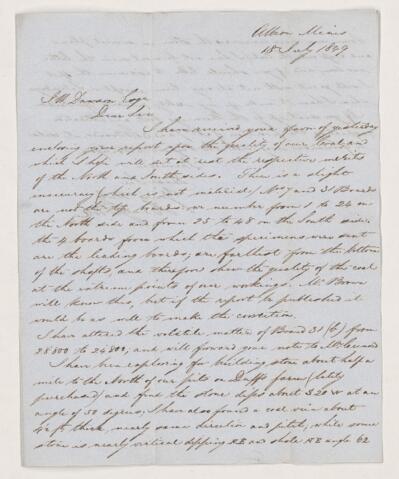 Albion Mines
18 July 1849
J.W. Dawson Esqr
Dear Sir
I have received your favor of yesterday
enclosing your report upon the quality of our Coal, and
which I hope will set at rest the respective merits
of the North and South sides. There is a slight
inaccuracy (which is not material) No 7 and 31 Boards
are not the top boards. we number from 1 to 24 on
the North side and from 25 to 48 on the South side.
the 4 boards from which the specimens were sent
are the leading boards, are farthest from the bottom
of the shafts, and therefore show the quality of the coal
at the extreme points of our workings. Mr Brown
will know this, but if the report be published it
would be as well to make the correction.
I have altered the volatile matter of Board 31 (b) from
28.800 to 24.800, and will forward your note to
I have been exploring for building stone about half a
mile to the North of our pits on Duffs farm (lately
purchased) and find the stone dips about 320 at an
angle of 50 degrees, I have also found a coal vein about
4½ ft thick, nearly same direction and pitch, while some
stone is nearly vertical dipping NE and shale NE angle 62